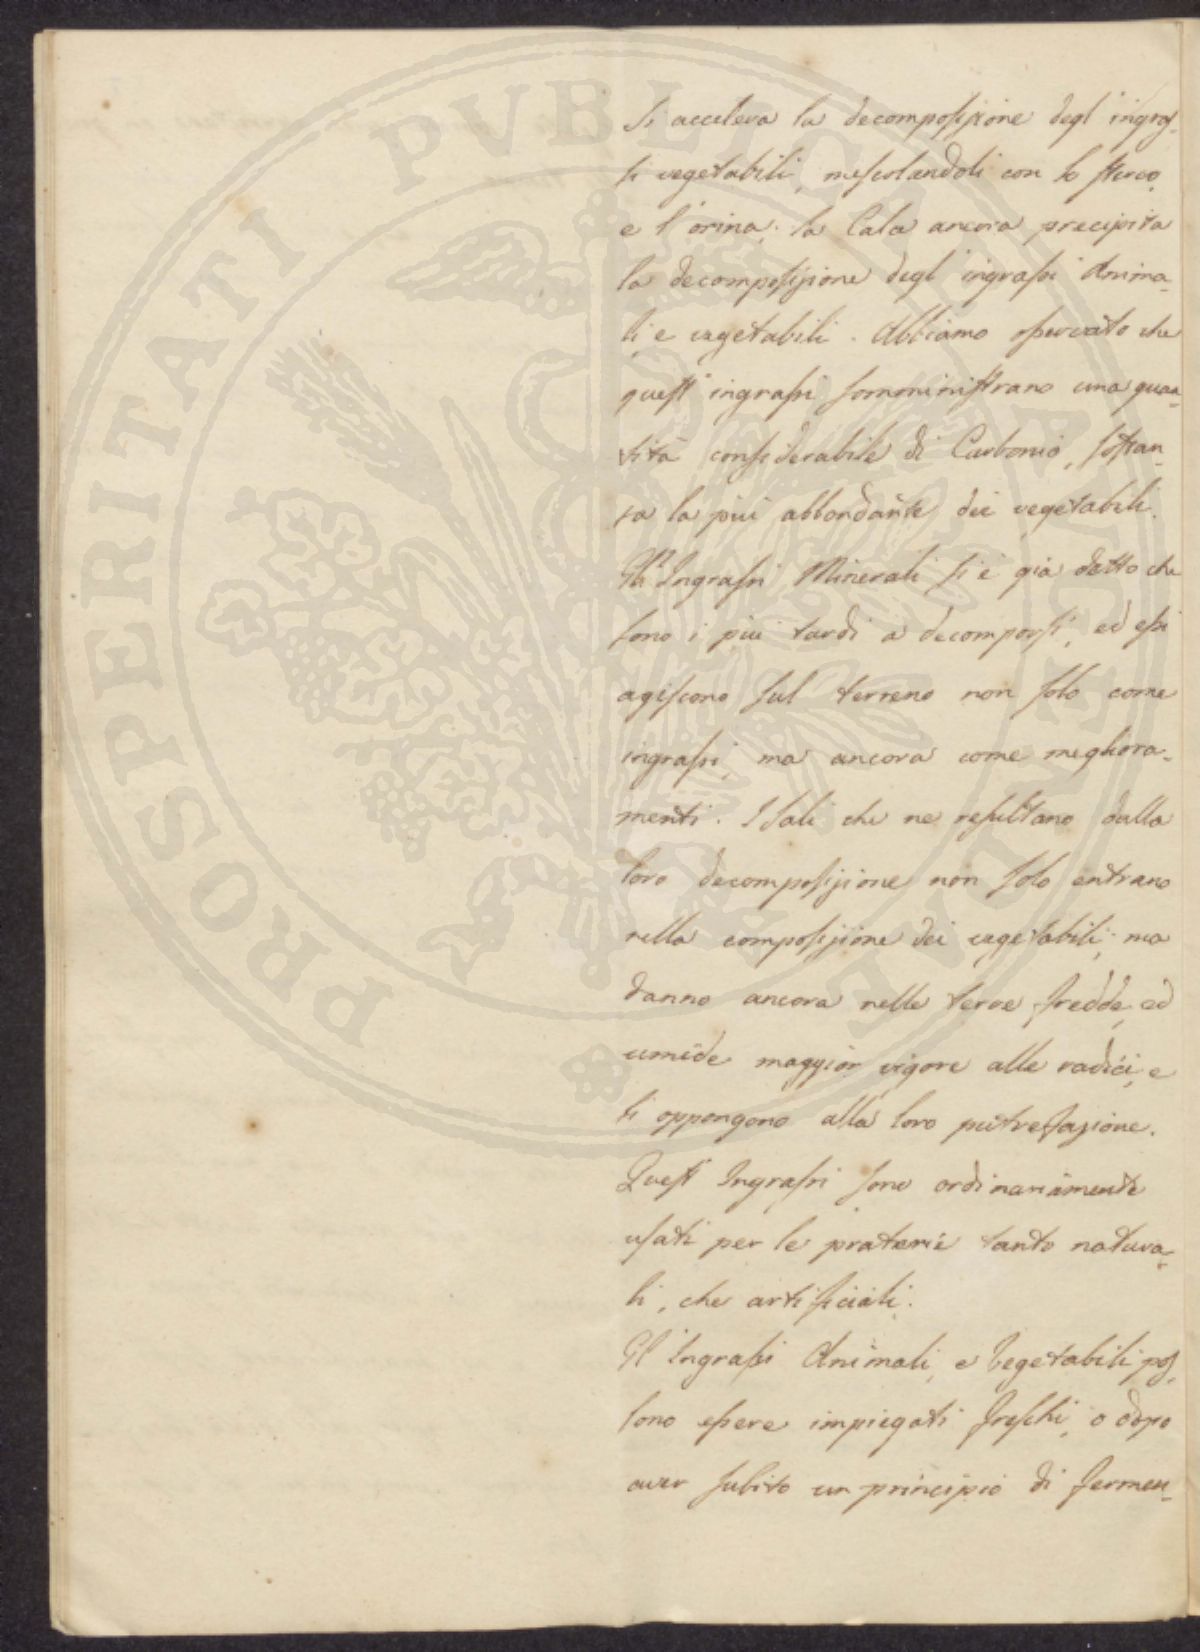 Si accelera la decomposizione degl'ingras-
si vegetabili, mescolandoli con lo sterco,
e l'orina; la Cala ancora precipita
la decomposizione degl'ingrassi Anima-
li, e vegetabili. Abbiamo osservato che
questi ingrassi somministrano una quan-
tità considerabile di Carbonio, sostan-
za la più abbondante dei vegetabili.
Gl'Ingrassi Minerali si è già detto che
sono i più tardi a decomporsi, ed essi
agiscono sul terreno non solo come
ingrassi, ma ancora come megliora-
menti. I sali che ne resultano dalla
loro decomposizione non solo entrano
nella composizione dei vegetabili; ma
danno ancora nelle terre fredde, ed
umide maggior vigore alle radici, e
si oppongono alla loro putrefazione.
Questi Ingrassi sono ordinariamente
usati per le praterie tanto natura-
li, che artificiali.
Gl'Ingrassi Animali, e Vegetabili pos-
sono essere impiegati freschi, o dopo
aver subito un principio di fermen-
PROSPERITATI PVBLICAE AVGENDAE